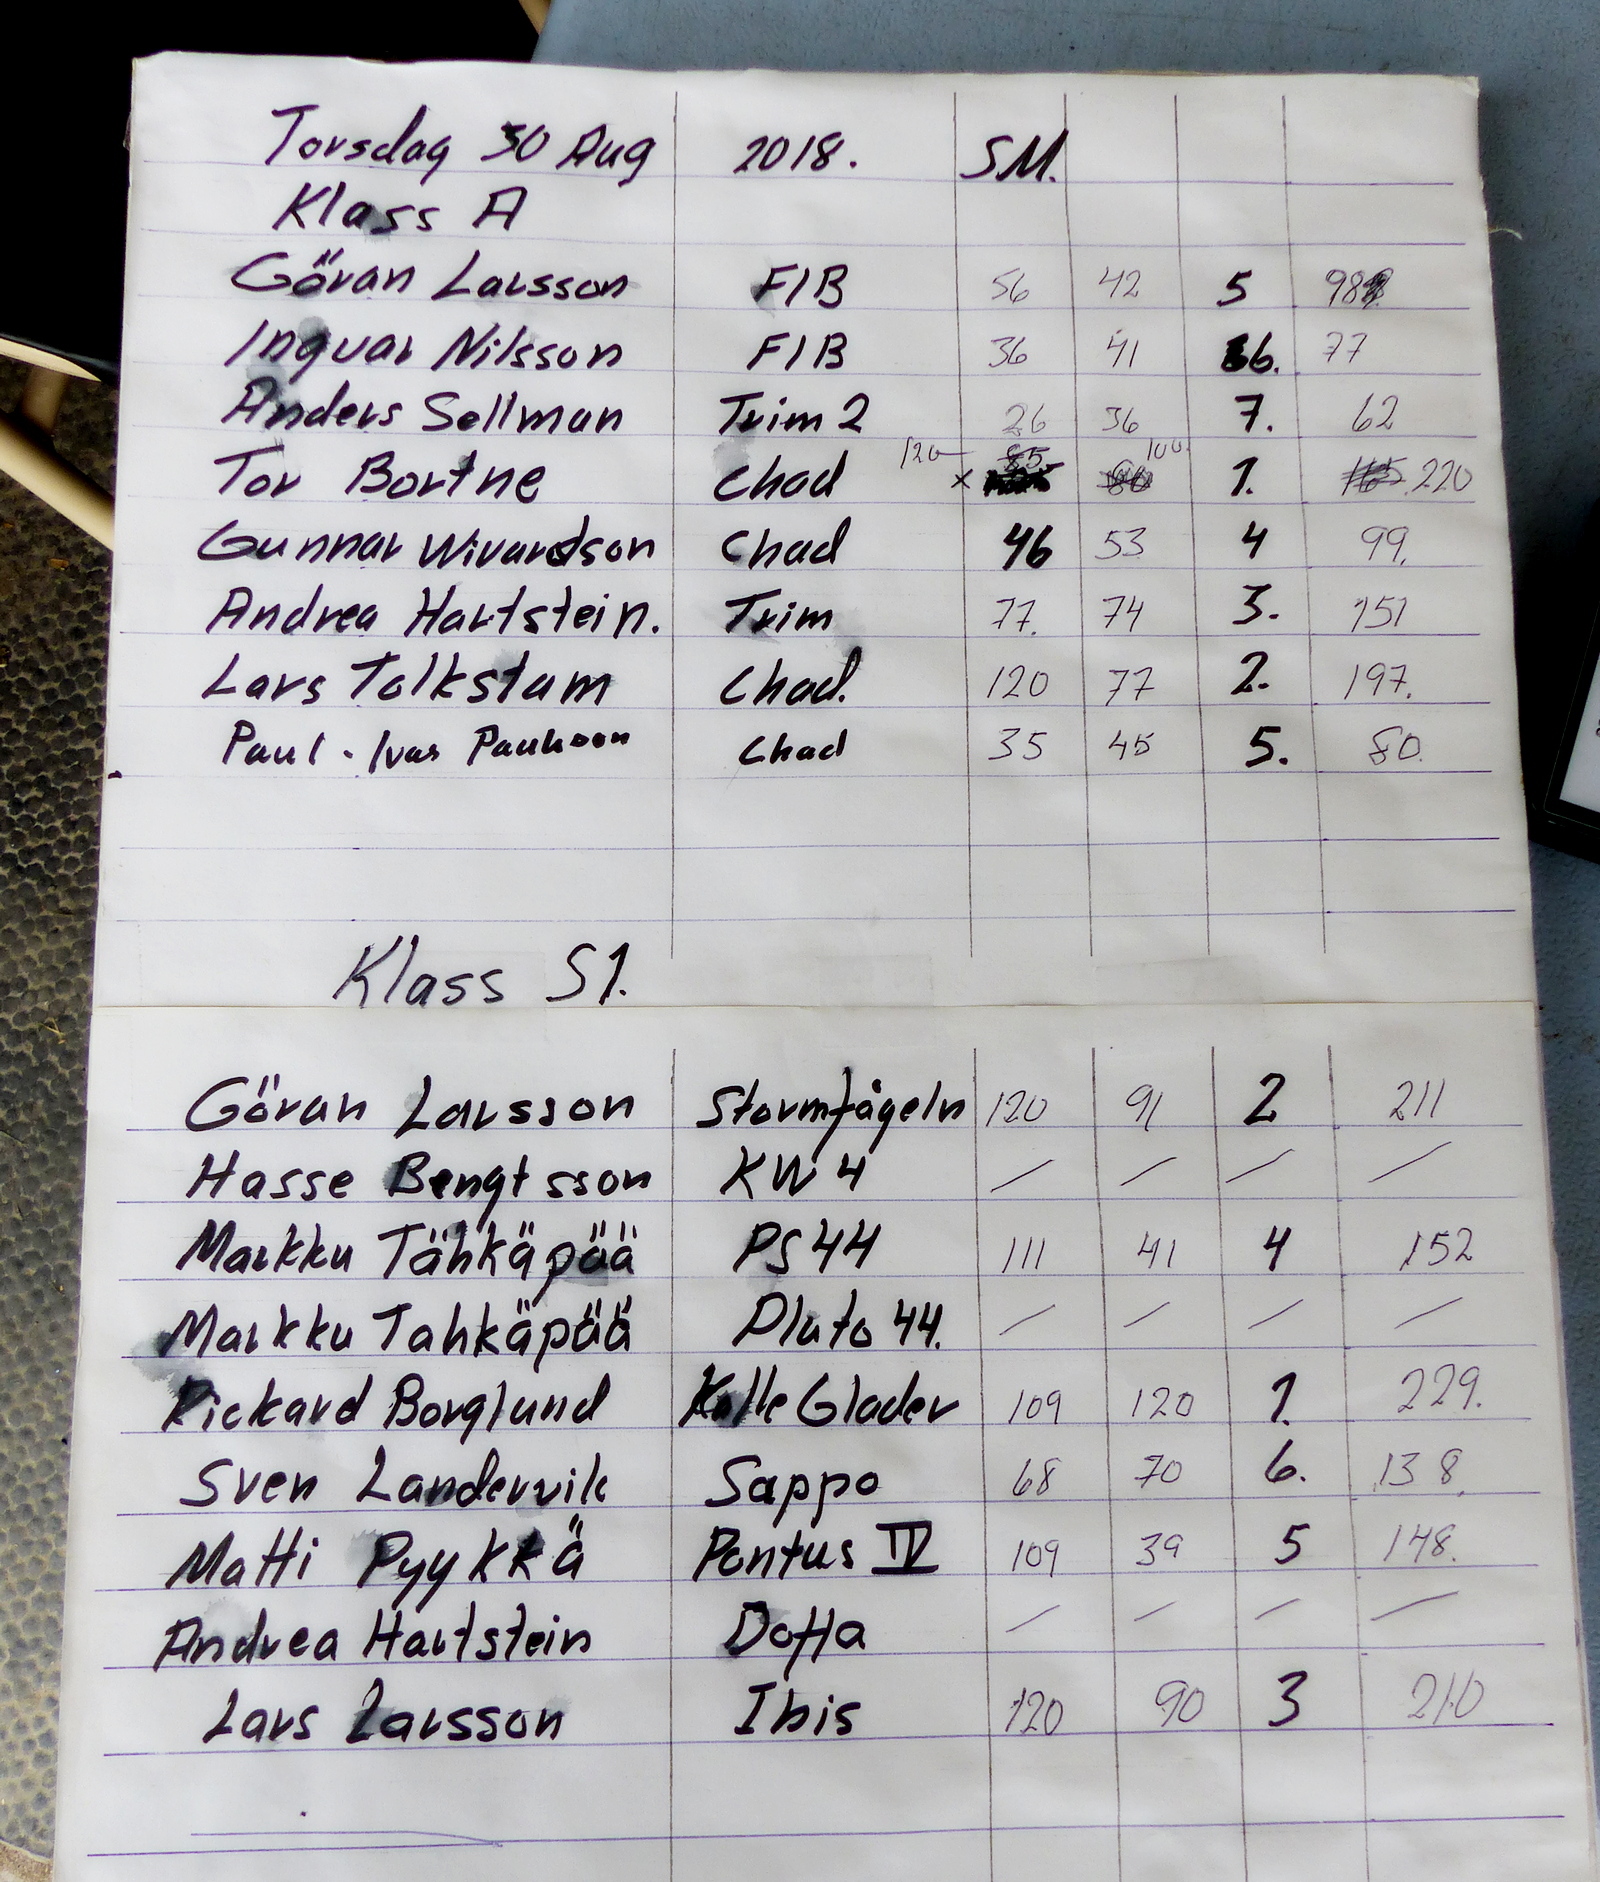 Torsdag 30 Aug 2018. SM.
Klass A
Göran Larsson FIB 56 42 5 98
Ingvar Nilsson FIB 36 41 6. 77
Anders Sellman Trim 2 26 36 7. 62
120 85. 100
Tor Bortne Chad x 1. 165 220
Gunnar Wivardson Chad 46 53 4 99.
Andrea Hartstein. Trim 77. 74 3. 151
Lars Tolkstam Chad. 120 77 2. 197.
Paul-Ivar Chad 35 45 5. 80.
Klass S1.
Göran Larsson Stormfågeln 120 91 2 211
Hasse Bengtsson KW 4 / / / /
Markku Tähkäpää PS 44 111 41 4 152
Markku Tahkäpää Pluto 44. / / / /
Rickard Borglund Kalle Glader 109 120 1. 229.
Sven Landervik Sappo 68 70 6. 138.
Matti Pyykkä Pontus IV 109 39 5 148.
Andrea Hartstein Dotta / / / /
Lars Larsson Ibis 120 90 3 210